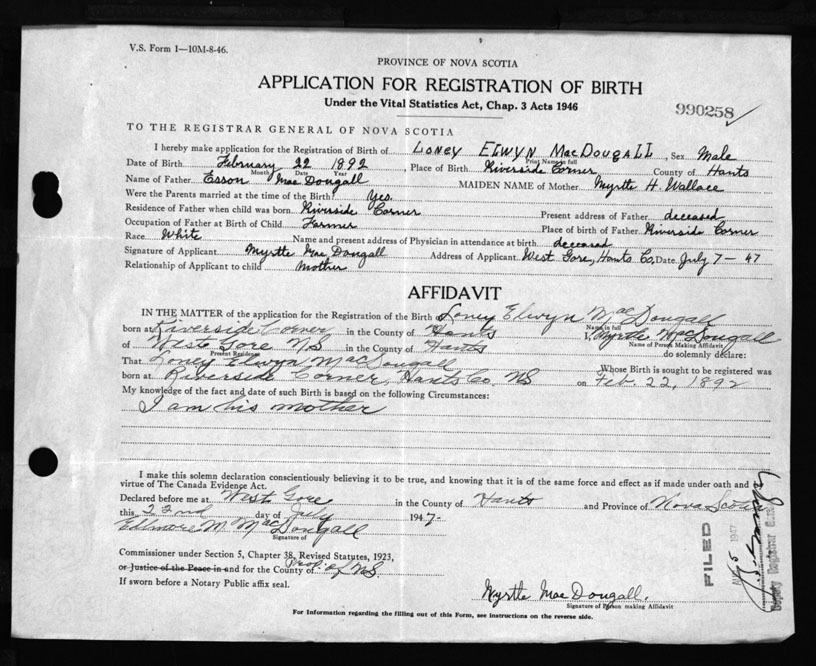 V.S. Form 1—10M-8-46.
PROVINCE OF NOVA SCOTIA
APPLICATION FOR REGISTRATION OF BIRTH
Under the Vital Statistics Act, Chap. 3 Acts 1946
990258
TO THE REGISTRAR GENERAL OF NOVA SCOTIA
I hereby make application for the Registration of Birth of Loney Elwyn MacDougall, Sex Male
Print Name in full
Date of Birth February 22 1892, Place of Birth Riverside Corner, County of Hants
Month Date Year
Name of Father Esson MacDougall MAIDEN NAME of Mother Myrtle H. Wallace
Were the Parents married at the time of the Birth? Yes.
Residence of Father when child was born Riverside Corner Present address of Father deceased
Occupation of Father at Birth of Child Farmer Place of birth of Father Riverside Corner
Race White Name and present address of Physician in attendance at birth deceased
Signature of Applicant Myrtle MacDougall Address of Applicant West Gore, Hants Co, Date July 7-47
Relationship of Applicant to child Mother
AFFIDAVIT
IN THE MATTER of the application for the Registration of the Birth of Loney Elwyn MacDougall
Name in full
born at Riverside Corner in the County of Hants I, Myrtle MacDougall
Name of Person Making Affidavit
of West Gore NS in the County of Hants do solemnly declare:
Present Residence
That Loney Elwyn MacDougall Whose Birth is sought to be registered was
born at Riverside Corner, Hants Co. NS on Feb. 22, 1892
My knowledge of the fact and date of such Birth is based on the following Circumstances:
I am his mother
I make this solemn declaration conscientiously believing it to be true, and knowing that it is of the same force and effect as if made under oath and by
virtue of The Canada Evidence Act.
Declared before me at West Gore in the County of Hants and Province of Nova Scotia
this 22nd day of July 1947.
MacDougall
Signature of
Commissioner under Section 5, Chapter 38, Revised Statutes, 1923,
or Justice of the Peace in and for the County of Prov. of NS
If sworn before a Notary Public affix seal.
Myrtle MacDougall.
Signature of Person making Affidavit
For Information regarding the filling out of this Form, see instructions on the reverse side.
FILED
1947
Deputy Registrar